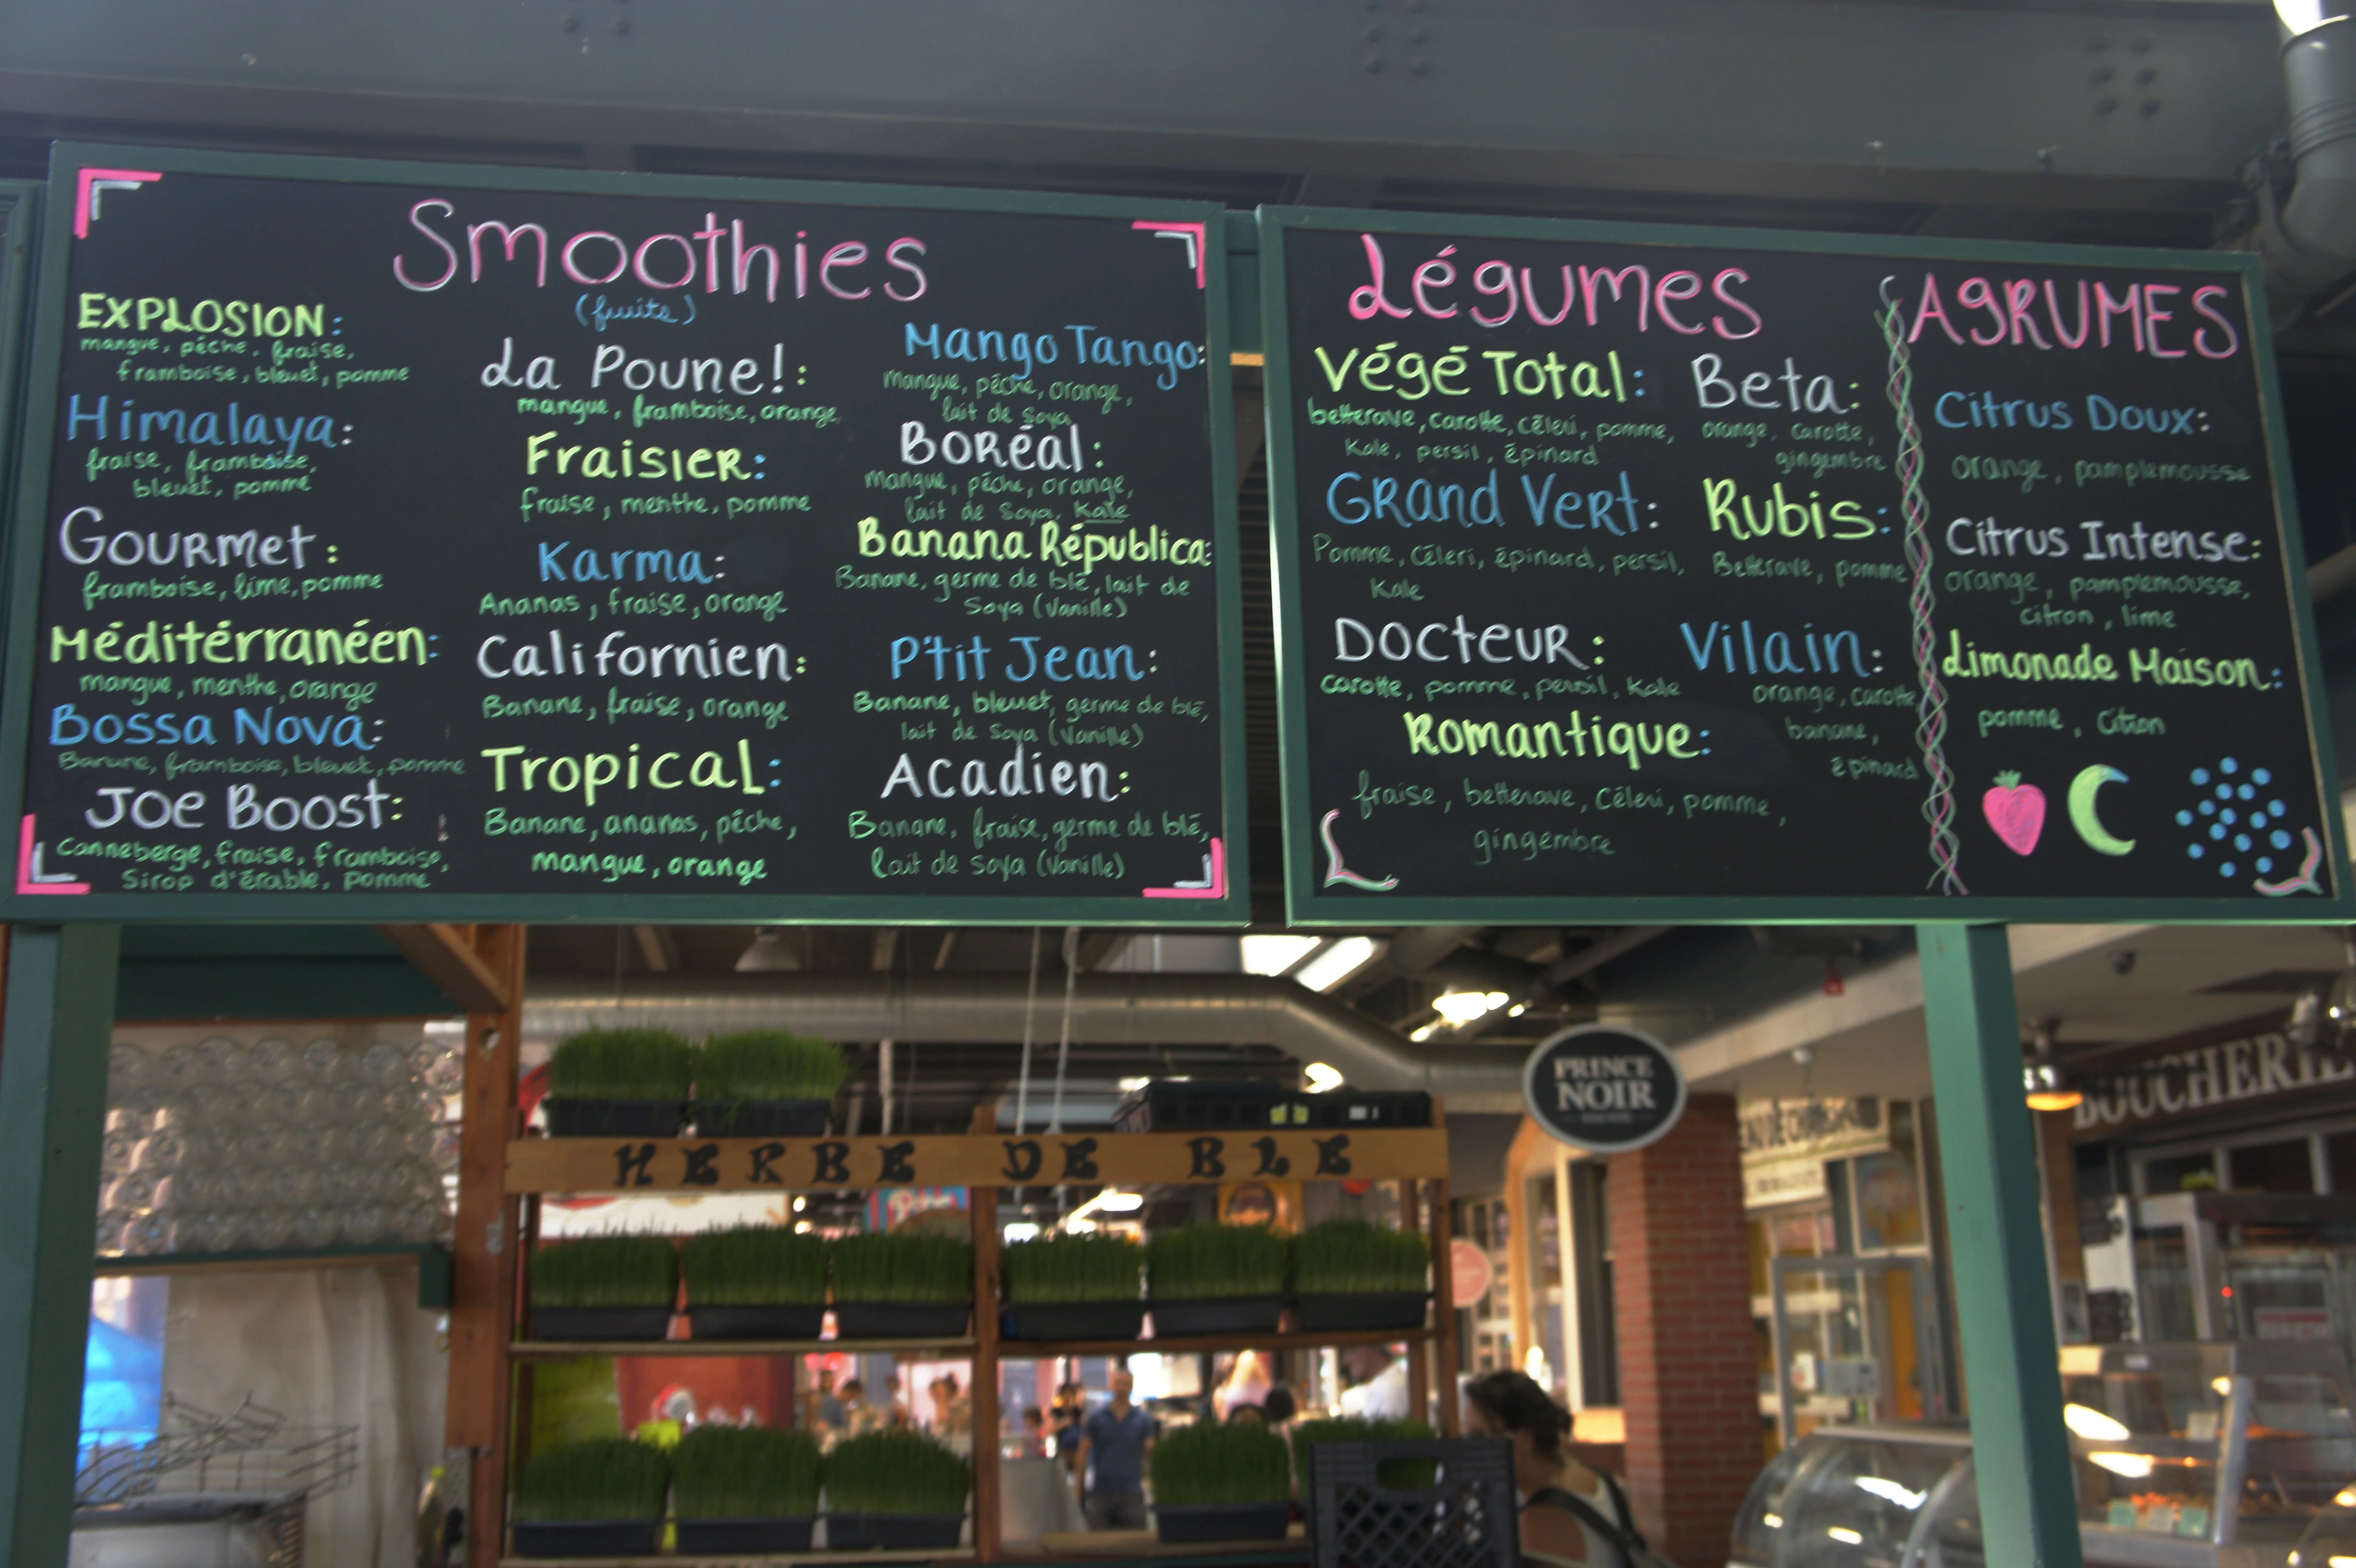 Smoothies
(fruits)
EXPLOSION:
mangue, pêche, fraise,
framboise, bleuet, pomme
Himalaya:
fraise, framboise,
bleuet, pomme
Gourmet:
framboise, lime, pomme
Méditérranéen:
mangue, menthe, orange
Bossa Nova:
Banane, framboise, bleuet, pomme
Joe Boost:
Canneberge, fraise, framboise,
Sirop d'érable, pomme
La Poune!:
mangue, framboise, orange
Fraisier:
fraise, menthe, pomme
Karma:
Ananas, fraise, orange
Californien:
Banane, fraise, orange
Tropical:
Banane, ananas, pêche,
mangue, orange
Mango Tango:
Mangue, pêche, orange,
lait de soya
Boréal:
Mangue, pêche, orange,
lait de Soya, Kale
Banana Républica:
Banane, germe de blé, lait de
Soya (Vanille)
P'tit Jean:
Banane, bleuet, germe de blé,
lait de Soya (Vanille)
Acadien:
Banane, fraise, germe de blé,
lait de Soya (Vanille)
Légumes
Végé Total:
betterave, carotte, céleri, pomme,
Kale, persil, épinard
Grand Vert:
Pomme, Céleri, épinard, persil,
Kale
Docteur:
carotte, pomme, persil, Kale
Romantique:
fraise, betterave, Céleri, pomme,
gingembre
Beta:
orange, carotte,
gingembre
Rubis:
Betterave, pomme
Vilain:
orange, carotte
banane,
épinard
AGRUMES
Citrus Doux:
orange, pamplemousse
Citrus Intense:
orange, pamplemousse,
citron, lime
Limonade Maison:
pomme, Citron
HERBE DE BLE
PRINCE
NOIR
BOUCHERIE